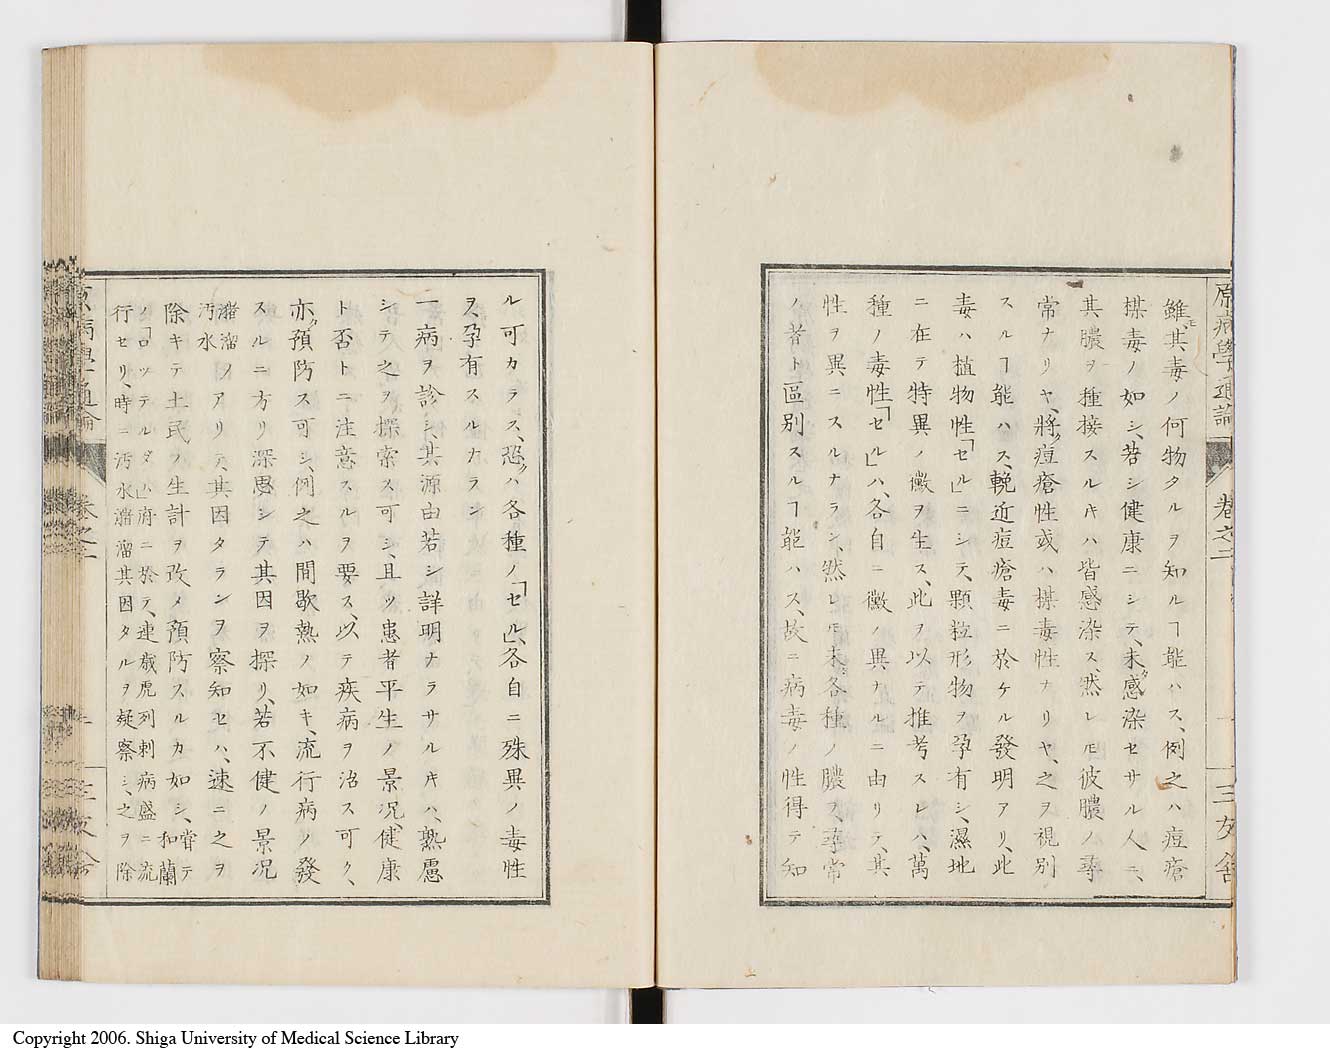 原病學通論
卷之二
三友舍
雖モ、其毒ノ何物タルヲ知ルヿ能ハス、例之ハ痘瘡
楳毒ノ如シ、若シ健康ニシテ、未タ感染セサル人ニ、
其膿ヲ種接スルキハ皆感染ス、然レㅌ彼膿ノ尋
常ナリヤ、將タ痘瘡性或ハ楳毒性ナリヤ、之ヲ視別
スルヿ能ハス、輓近痘瘡毒ニ於ケル發明アリ、此
毒ハ植物性「セル」ニシテ、顆粒形物ヲ孕有シ、濕地
ニ在テ特異ノ黴ヲ生ス、此ヲ以テ推考スレハ、萬
種ノ毒性「セル」ハ、各自ニ黴ノ異ナルニ由リテ、其
性ヲ異ニスルナラン、然レㅌ未タ各種ノ膿ヲ、尋常
ノ者ト區別スルヿ能ハス、故ニ病毒ノ性得テ知
ル可カラス、恐クハ各種ノ「セル」、各自ニ殊異ノ毒性
ヲ孕有スルカラン
一病ヲ診シ、其源由若シ詳明ナラサルキハ、熟慮
シテ之ヲ探索ス可シ、且ツ患者平生ノ景况、健康
ト否トニ注意スルヲ要ス、以テ疾病ヲ治ス可ク、
亦タ預防ス可シ、例之ハ間歇熱ノ如キ、流行病ノ發
スルニ方リ深思シテ其因ヲ探リ、若不健ノ景况
汚水瀦溜ノアリテ、其因タランヲ察知セハ、速ニ之ヲ
除キテ土民ノ生計ヲ改メ預防スルカ如シ、嘗テ和蘭
ノ「ロッテルダ」府ニ於テ、連歳虎列刺病盛ニ流
行セリ、時ニ汚水瀦溜其因タルヲ疑察シ、之ヲ除
原病學通論
卷之二
三友舍
Copyright 2006. Shiga University of Medical Science Library